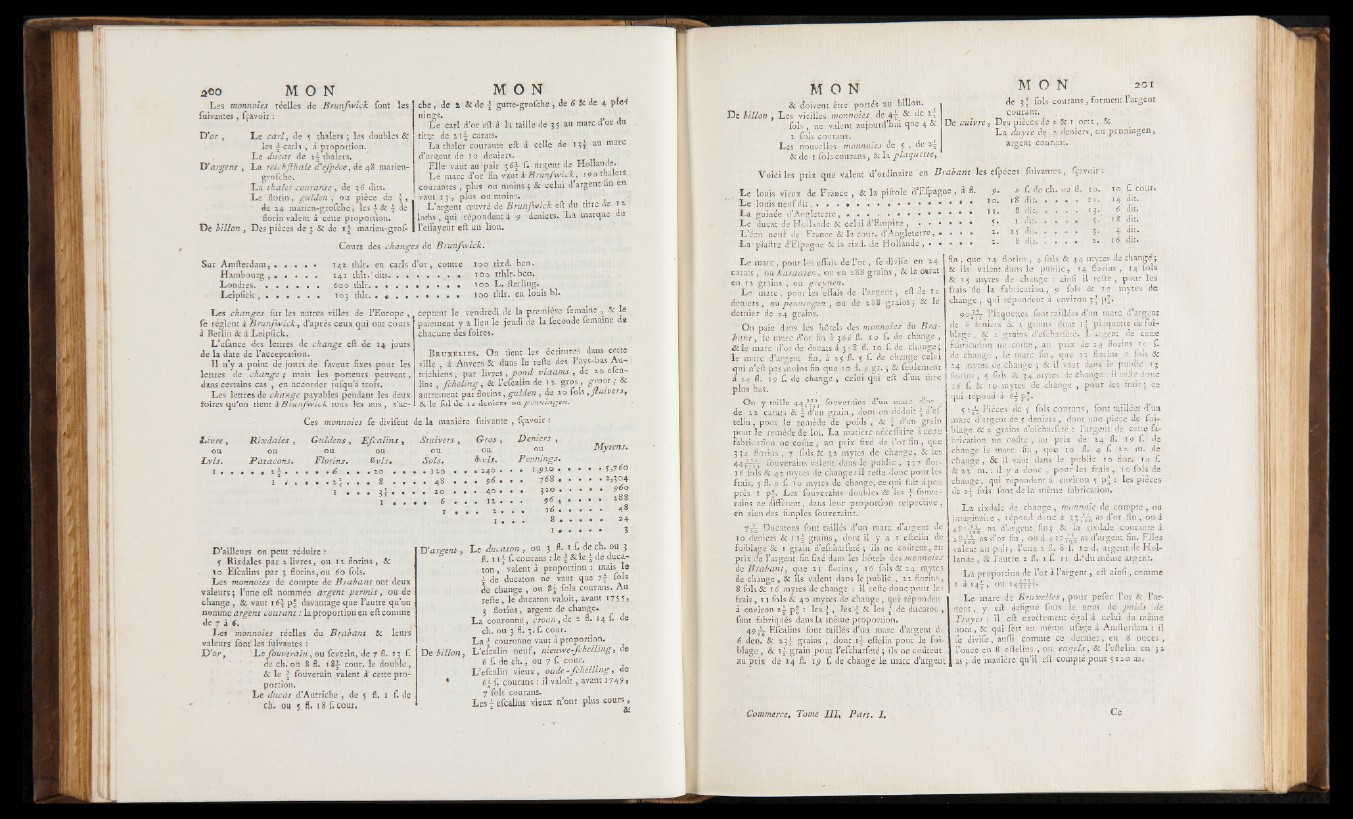 200 MON MON
Les monnoies réelles de Brunswick sont les
suivantes, sçavoir :
D'or, Le carl, de 5 thalers ; les doubles &
les ½ carls, à proportion.
Le ducat de 2¾ thalers.
D'argent, La reichsthale d'espèce, de 48 marien-
grosche.
La thaler courante, de 36 dits.
Le florin, gulden, ou pièce de ⅔,
de 24 marien-grosche, les ⅓ & ⅙ de
florin valent à cette proportion.
De billon, Des pièces de 3 & de 1½ marien-gros-
che, de 2 & de ½ gutte-grosche, de 6 & de 4 pfen-
nings.
Le carl d'or est à la taille de 35 au marc d'or du
titre de 21¾ carats.
La thaler courante est à celle de 13½ au marc
d'argent de 10 deniers.
Elle vaut au pair 36½ s. argent de Hollande.
Le marc d'or fin vaut à Brunswick, 190 thalers
courantes, plus ou moins ; & celui d'argent fin en
vaut 13, plus ou moins.
L'argent œuvré de Brunswick est du titre de 12
loths, qui répondent à 9 deniers. La marque de
l'essayeur est un lion.
Cours des changes de Brunswick.
Sur Amsterdam, . . . . . 142 thlr. en carls d'or, contre 100 rixd. bco.
Hambourg, . . . . . 141 thlr. dits. . . . . . . . . 100 rthlr. bco.
Londres. . . . . . . 600 thlr. . . . . . . . . . 100 L. sterling.
Leipsick, . . . . . . 103 thlr. . . . . . . . . . 100 thlr. en louis bl.
Les changes sur les autres villes de l'Europe,
se règlent à Brunswick, d'après ceux qui ont cours
à Berlin & à Leipsick.
L'usance des lettres de change est de 14 jours
de la date de l'acceptation.
Il n'y a point de jours de faveur fixes pour les
lettres de change ; mais les porteurs peuvent,
dans certains cas, en accorder jusqu'à trois.
Les lettres de change payables pendant les deux
foires qu'on tient à Brunswick tous les ans, s'ac-
ceptent le vendredi de la première semaine, & le
paiement y a lieu le jeudi de la seconde semaine de
chacune des foires.
BRUXELLES. On tient les écritures dans cette
ville, à Anvers & dans le reste des Pays-bas Au-
trichiens, par livres, pond vlaams, de 20 esca-
lins, scheling, & l'escalin de 12 gros, groot ; &
autrement par florins, gulden, de 20 sols, stuivers,
& le sol de 12 deniers ou penningen.
Ces monnoies se divisent de la manière suivante, sçavoir :
Livre, Rixdales, Guldens, Escalins, Stuivers, Gros, Deniers,
ou ou ou ou ou ou ou Mytens.
Lvls. Patacons. Florins. ſvls. Sols. ꝺvls. Pennings.
1 . . . . 2½ . . . . . 6 . . . . 20 . . . . . 120 . . . . 240 . . . 1,920 . . . . . 5,760
1 . . . . . 2⅖ . . . 8 . . . . . 48 . . . 96 . . . 768 . . . . . 2,304
1 . . . . 3⅓ . . . . 20 . . . 40 . . . 320 . . . . . 960
1 . . . . 6 . . . 12 . . . 96 . . . . . 288
1 . . . 2 . . . 16 . . . . . 48
1 . . . 8 . . . . . 24
1 . . . . . 3
D'ailleurs on peut réduire :
5 Rixdales par 2 livres, ou 12 florins, &
10 Escalins par 3 florins, ou 60 sols.
Les monnoies de compte de Brabant ont deux
valeurs ; l'une est nommée argent permis, ou de
change, & vaut 16⅔ p% davantage que l'autre qu'on
nomme argent courant : la proportion en est comme
de 7 à 6.
Les monnoies réelles du Brabant & leurs
valeurs sont les suivantes :
D'or, Le souverain, ou severin, de 7 fl. 13 s.
de ch. ou 8 fl. 18½ cour. le double,
& le ½ souverain valent à cette pro-
portion.
Le ducat d'Autriche, de 5 fl. 1 s. de
ch. ou 5 fl. 18 s. cour.
D'argent, Le ducaton, ou 3 fl. 1 s. de ch. ou 3
fl. 11½ s. courans : le ½ & le ¼ de duca-
ton, valent à proportion : mais le
⅛ de ducaton ne vaut que 7½ sols
de change, ou 8¾ sols courans. Au
reste, le ducaton valoit, avant 1755,
3 florins, argent de change.
La couronne, croon, de 2 fl. 14 s. de
ch. ou 3 fl. 3. s. cour.
La ½ couronne vaut à proportion.
De billon, L'escalin neuf, nieuwe-schelling, de
6 s. de ch., ou 7 s. cour.
L'escalin vieux, oude-schelling, de
6½ s. courans : il valoit, avant 1749,
7 sols courans.
Les ½ escalins vieux n'ont plus cours,
&
MON MON 201
& doivent être portés au billon.
De billon, Les vieilles monnoies de 4½ & de 2¼
sols, ne valent aujourd'hui que 4 &
2 sols courans.
Les nouvelles monnoies de 5, de 2½
& de 1 sols courans, & la plaquette,
de 3½ sols courans, forment l'argent
courant.
De cuivre, Des pièces de 2 & 1 orts, &
La duyte de 2 deniers, ou penningen,
argent courant.
Voici les prix que valent d'ordinaire en Brabant les espèces suivantes, sçavoir :
Le louis vieux de France, & la pistole d'Espagne, à fl. 9. » s. de ch. ou fl. 10. 10 s. cour.
Le louis neuf dit, . . . . . . . . . . . . 10. 18 dit. . . . . . 12. 14 dit.
La guinée d'Angleterre, . . . . . . . . . 11. 8 dit. . . . . . 13. 6 dit.
Le ducat de Hollande & celui d'Empire, . . . . . 5. 1 dit. . . . . . 5. 18 dit.
L'écu neuf de France & la cour. d'Angleterre, . . . . 2. 15 dit. . . . . . 3. 4 dit.
La piastre d'Espagne & la rixd. de Hollande, . . . . 2. 8 dit. . . . . . 2. 16 dit.
Le marc, pour les essais de l'or, se divise en 24
carats, ou karaaten, ou en 288 grains, & le carat
en 12 grains, ou greynen.
Le marc, pour les essais de l'argent, est de 12
deniers, ou penningen, ou de 288 grains ; & le
dernier de 24 grains.
On paie dans les hôtels des monnoies du Bra-
bant, le marc d'or fin à 366 fl. 10 s. de change,
& le marc d'or de ducats à 358 fl. 10 s. de change ;
le marc d'argent fin, à 25 fl. 5 s. de change celui
qui n'est pas moins fin que 10 d. » gr. ; & seulement
à 24 fl. 19 s. de change, celui qui est d'un titre
plus bas.
On y taille souverains d'un marc d'or
de 22 carats & ½ d'un grain, dont on déduit
telin, pour le remède de poids, & d'un grain
pour le remède de loi. La matière nécessaire à cette
fabrication ne coûte, au prix fixé de l'or fin, que
332 florins, 7 sols & 32 mytes de change, & les
souverains valent dans le public, 337 flor.
16 sols & 42 mytes de change : il reste donc pour les
frais, 3 fl. 9 s. 10 mytes de change, ce qui fait à peu
près 1 p%. Les souverains doubles & les ½ souve-
rains ne diffèrent, dans leur proportion respective,
en rien des simples souverains.
Ducatons sont taillés d'un marc d'argent de
10 deniers & 11½ grains, dont il y a 1 estelin de
foiblage & 1 grain d'escharseté ; ils ne coûtent, au
prix de l'argent fin fixé dans les hôtels des monnoies
de Brabant, que 21 florins, 16 sols & 24 mytes
de change, & ils valent dans le public, 22 florins,
8 sols & 16 mytes de change : il reste donc pour les
frais, 11 sols & 40 mytes de change, qui répondent
à environ 2½ p% : les ½, les ¼ & les ⅛ de ducaton,
sont fabriqués dans la même proportion.
Escalins sont taillés d'un marc d'argent de
6 den. & 23½ grains, dont 1½ estelin pour le foi-
blage, & 1½ grain pour l'escharseté ; ils ne coûtent
au prix de 14 fl. 19 s. de change le marc d'argent
fin, que 14 florins, 4 sols & 44 mytes de change ;
& ils valent dans le public, 14 florins, 14 sols
& 15 mytes de change : ainsi il reste, pour les
frais de la fabrication, 9 sols & 19 mytes de
change, qui répondent à environ 3⅓ p%.
Plaquettes sont taillées d'un marc d'argent
de 6 deniers & 2 grains dont 1½ plaquette de foi-
blage, & 2 grains d'escharseté. L'argent de cette
fabrication ne coûte, au prix de 24 florins 10 s.
de change, le marc fin, que 12 florins 9 sols &
24 mytes de change ; & il vaut dans le public 13
florins, 5 sols & 34 mytes de change : il reste donc
16 s. & 10 mytes de change, pour les frais ; ce
qui répond à 6½ p%.
Pièces de 5 sols courans, sont taillées d'un
marc d'argent de 5 deniers, dont une pièce de foi-
blage & 2 grains d'escharseté : l'argent de cette fa-
brication ne coûte, au prix de 24 fl. 19 s. de
change le marc fin, que 10 fl. 4 s. 12 m. de
change, & il vaut dans le public 10 flor. 14 s.
& 22 m. : il y a donc, pour les frais, 10 sols de
change, qui répondent à environ 5 p% : les pièces
de 2½ sols sont de la même fabrication.
La rixdale de change, monnoie de compte, ou
imaginaire, répond donc à as d'or fin, ou à
as d'argent fin ; & la rixdale courante à
as d'or fin, ou à as d'argent fin. Elles
valent au pair, l'une 2 fl. 8 s. 10 d. argent de Hol-
lande, & l'autre 2 fl. 1 s. 11 d. du même argent.
La proportion de l'or à l'argent, est ainsi, comme
1 à 14½, ou
Le marc de Bruxelles, pour peser l'or & l'ar-
gent, y est désigné sous le nom de poids de
Troyes : il est exactement égal à celui du même
nom, & qui sert au même usage à Amsterdam : il
se divise, aussi comme ce dernier, en 8 onces,
l'once en 8 esterlins, ou engels, & l'estelin en 32
as ; de manière qu'il est compté pour 5120 as.
Commerce. Tome III. Part. I. Cc